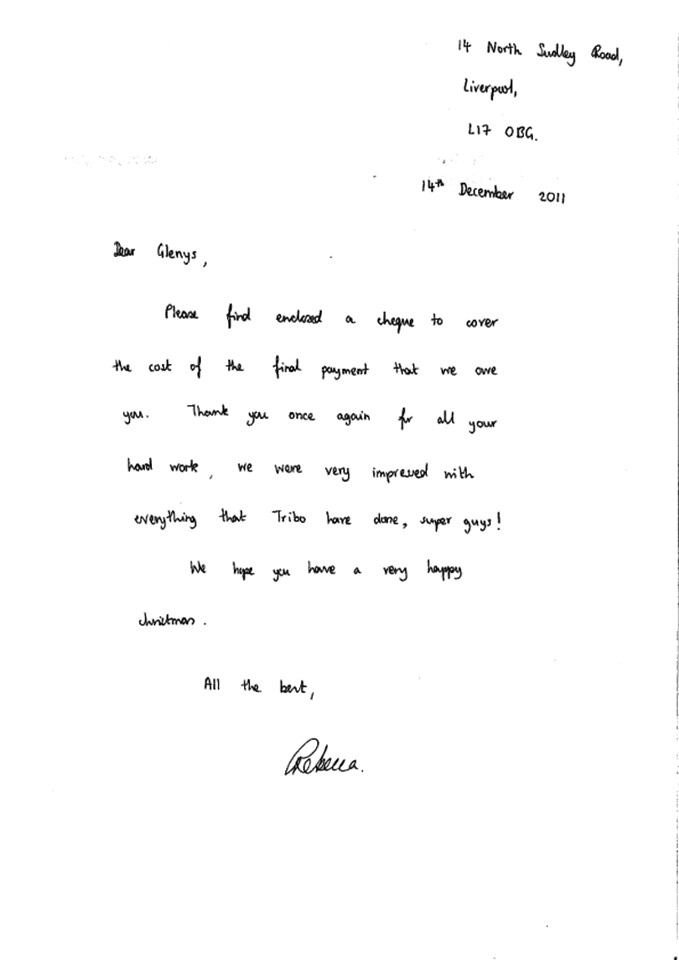 14 North Sudley Road,
Liverpool,
L17 0BG.
14th December 2011
Dear Glenys,
Please find enclosed a cheque to cover
the cost of the final payment that we owe
you. Thank you once again for all your
hard work, we were very impressed with
everything that Tribo have done, super guys!
We hope you have a very happy
christmas.
All the best,
Rebecca.